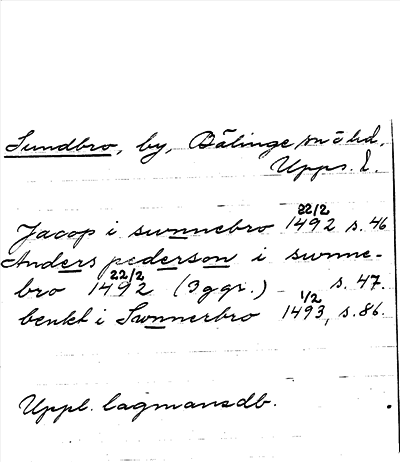 Sundbro, by, Bälinge sn o hd,
Upps. l.
22/2
Jacop i swnnebro 1492 s. 46
Anders pederson i swnne-
22/2
bro 1492 (3 ggr.) s. 47.
1/2
benkt i Swnnerbro 1493, s. 86.
Uppl. lagmansdb.